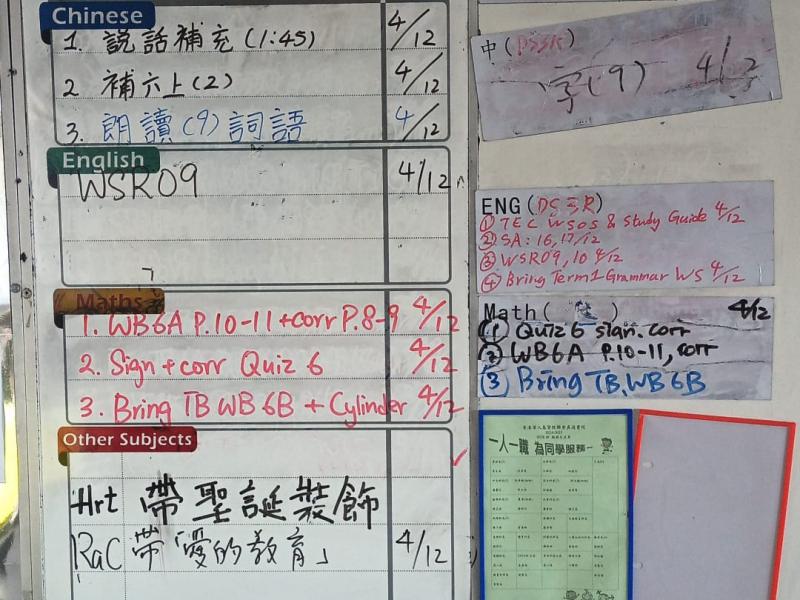 Chinese
1. 説話補充(1:45) 4/12
2 補六上(2) 4/12
3. 朗讀(9)詞語 4/12
English
WSR09 4/12
Maths
1. WB6A P.10-11+corr P.8-9 4/12
2. Sign + corr Quiz 6 4/12
3. Bring TB WB 6B + Cylinder 4/12
Other Subjects
Art 帶聖誕裝飾
RaC 帶「愛的教育」 4/12
中(
(9) 4/12
ENG(
① TEC WS05 & Study Guide 4/12
② SA: 16, 17/12
③ WSR09, 10 4/12
④ Bring Term1 Grammar WS 4/12
Math( ) 4/12
① Quiz 6 sign. corr
② WB6A P.10-11, corr
③ Bring TB, WB 6B
一人一職 為同學服務